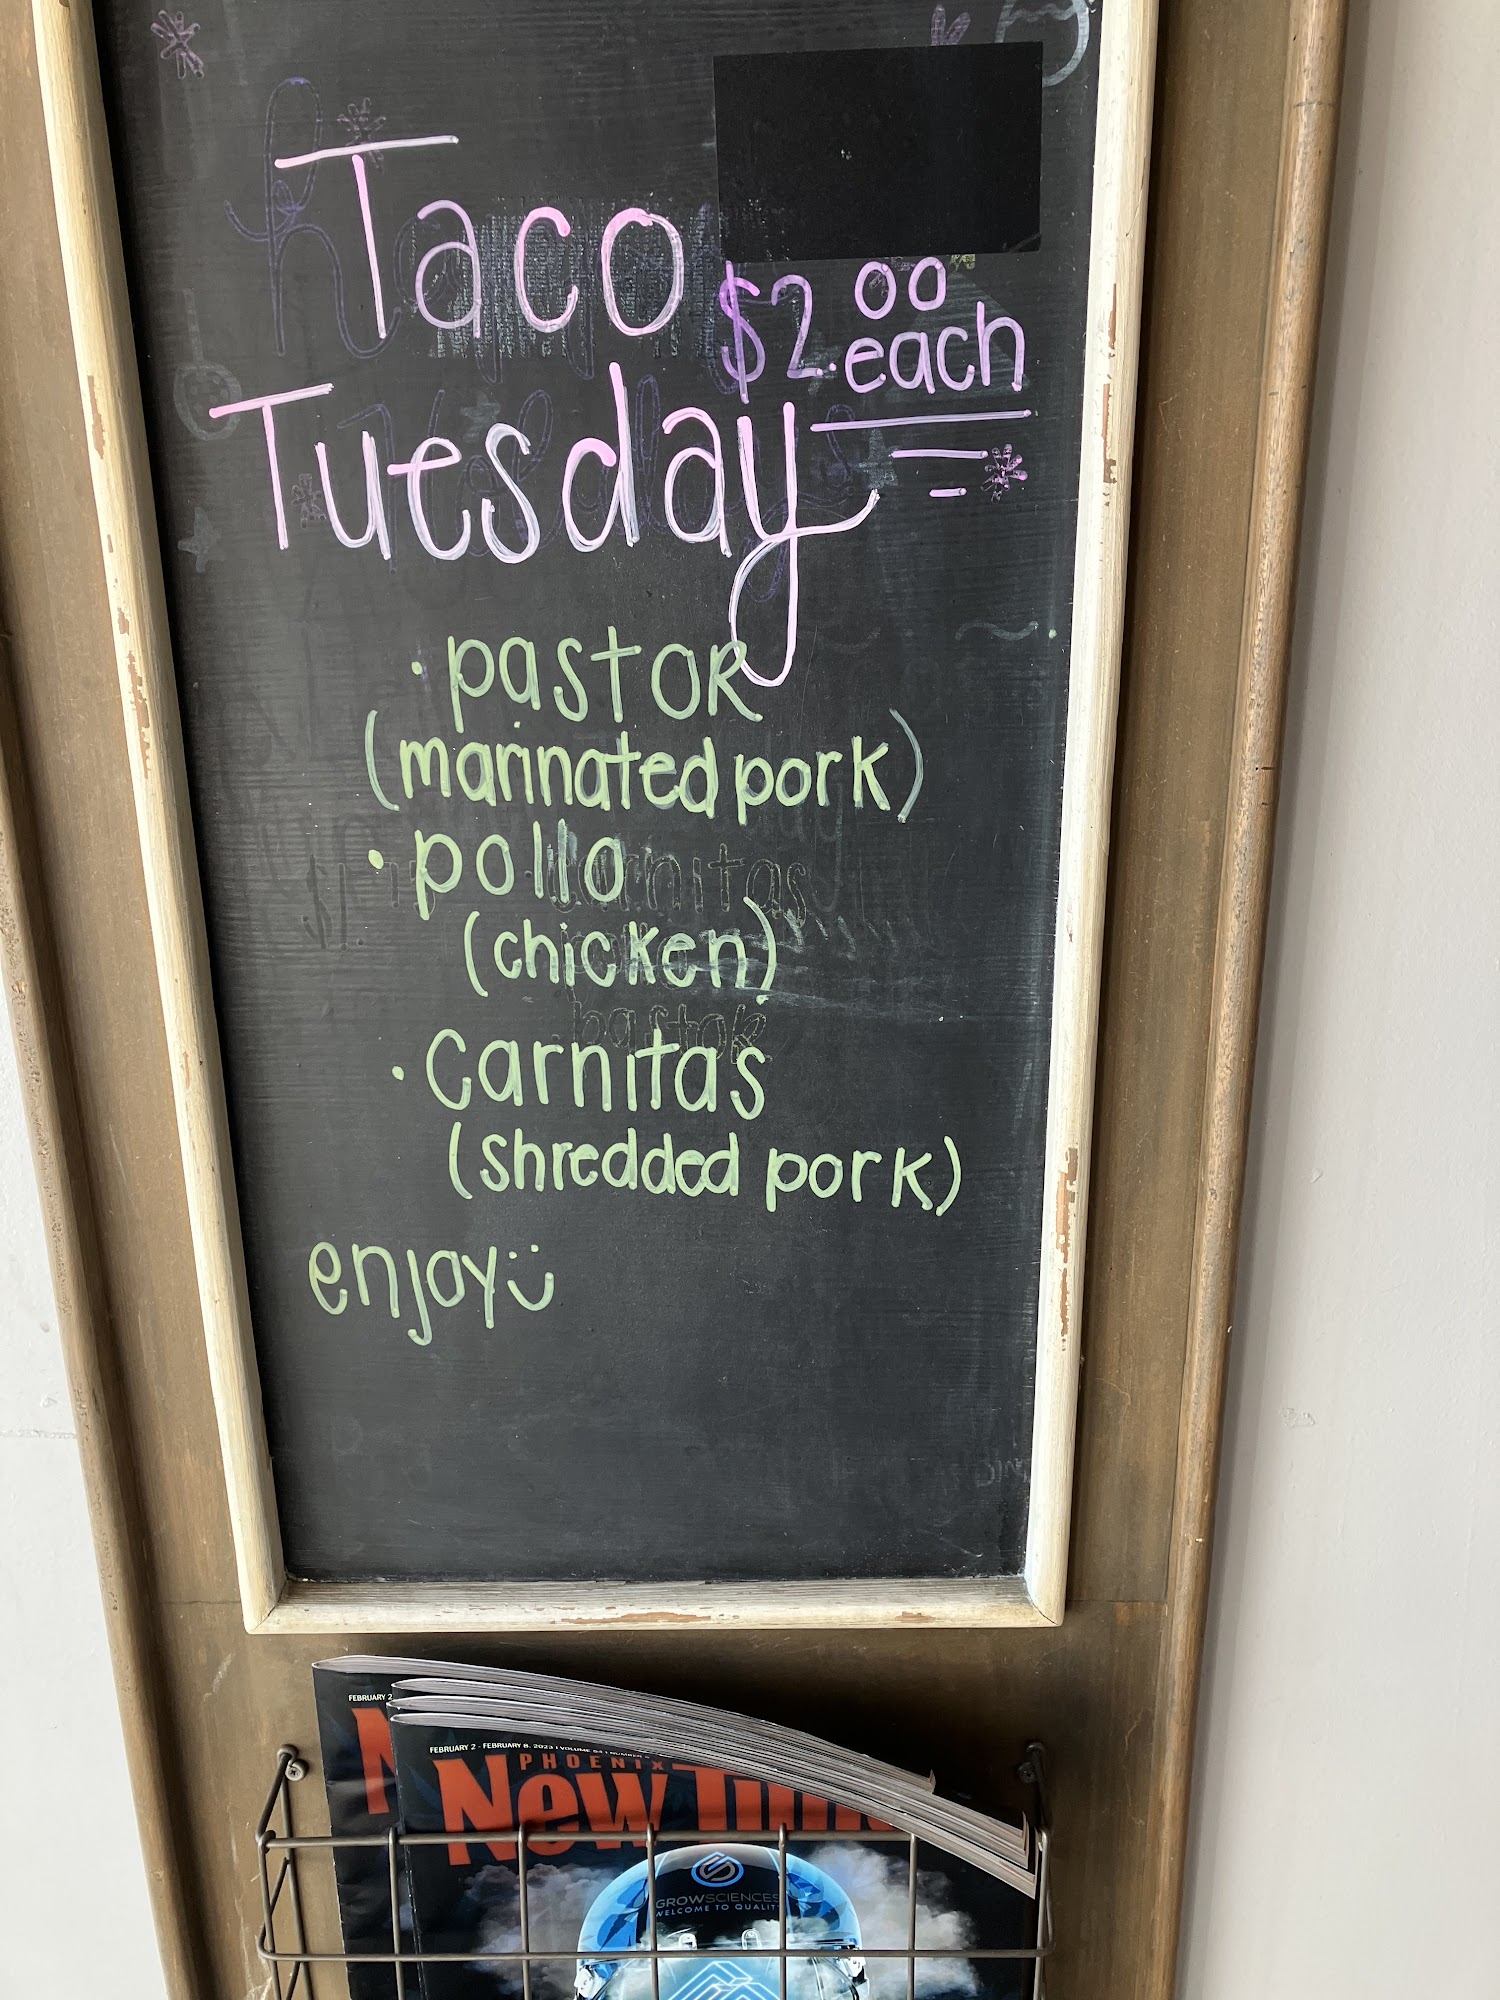 Taco
$2.00
each
Tuesday
· pastor
(marinated pork)
· pollo
(chicken)
· Carnitas
(shredded pork)
enjoy
FEBRUARY 2
FEBRUARY 2 - FEBRUARY 8, 2023 | VOLUME
PHOENIX
New
GROWSCIENCES
WELCOME TO QUALITY